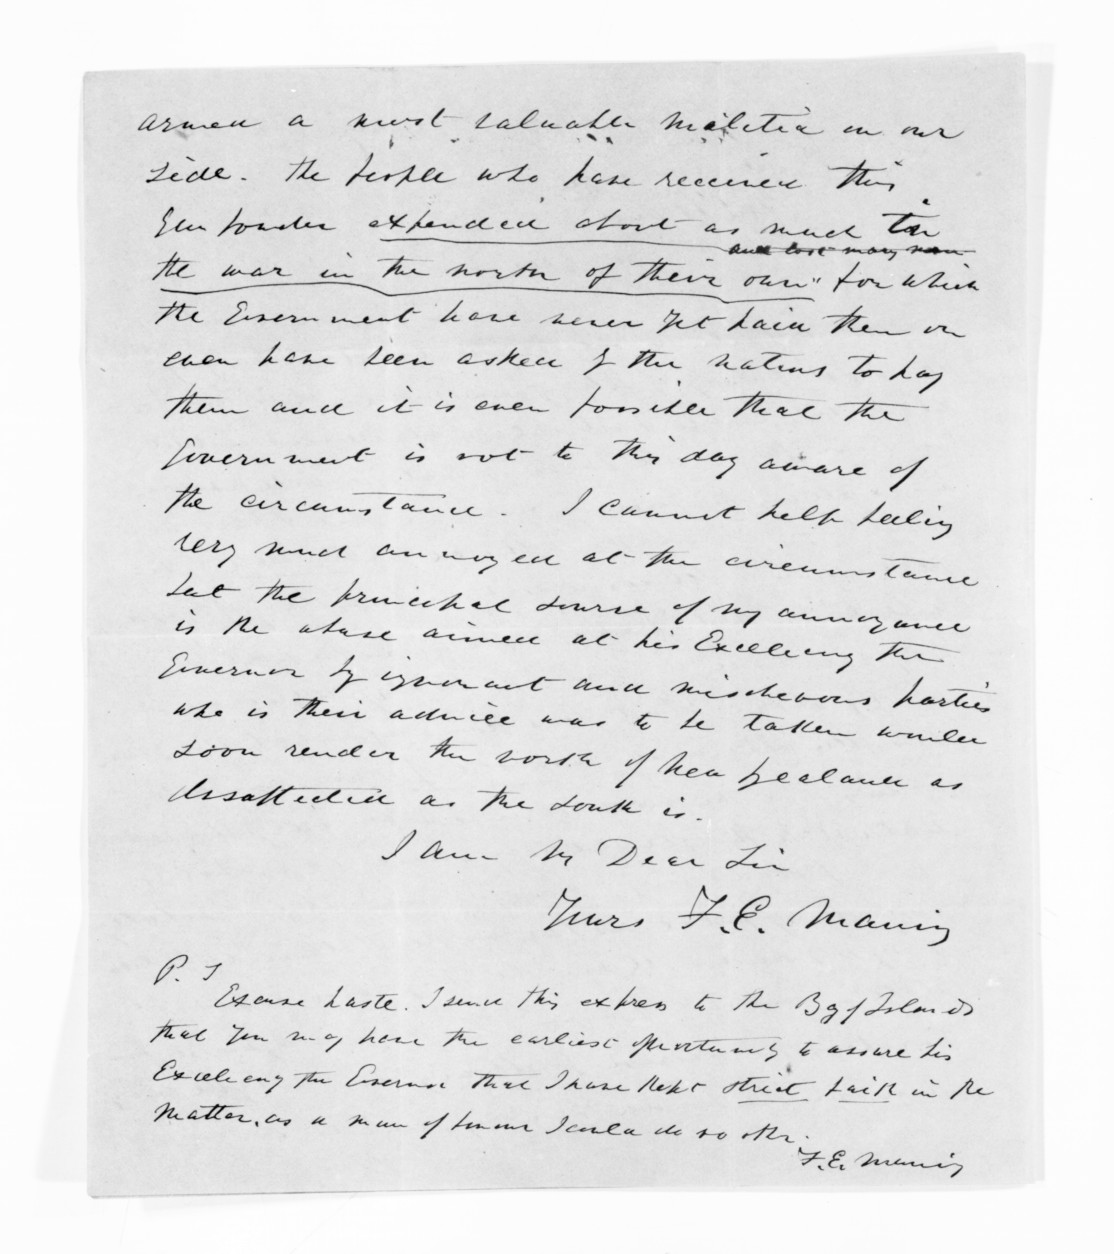 armed a most valuable militia on our
side. The people who have received this
Gun powder expended about as much in
and lost many men
the war in the north of their own" for which
the Government have never yet paid them or
even have been asked by the natives to pay
them and it is even possible that the
Government is not to this day aware of
the circumstance. I cannot help feeling
very much annoyed at the circumstance
but the principal source of my annoyance
is the abuse aimed at his Excellency the
Governor by ignorant and mischevous parties
who is their advice was to be taken would
soon render the north of New Zealand as
disaffected as the South is.
I am My Dear Sir
Yours F. E. Maning
P. S
Excuse haste. I send this express to the Bay of Islands
that you may have the earliest opportunity to assure his
Excellency the Governor that I have kept strict faith in the
matter, as a man of honour I could do no other.
F. E. Maning